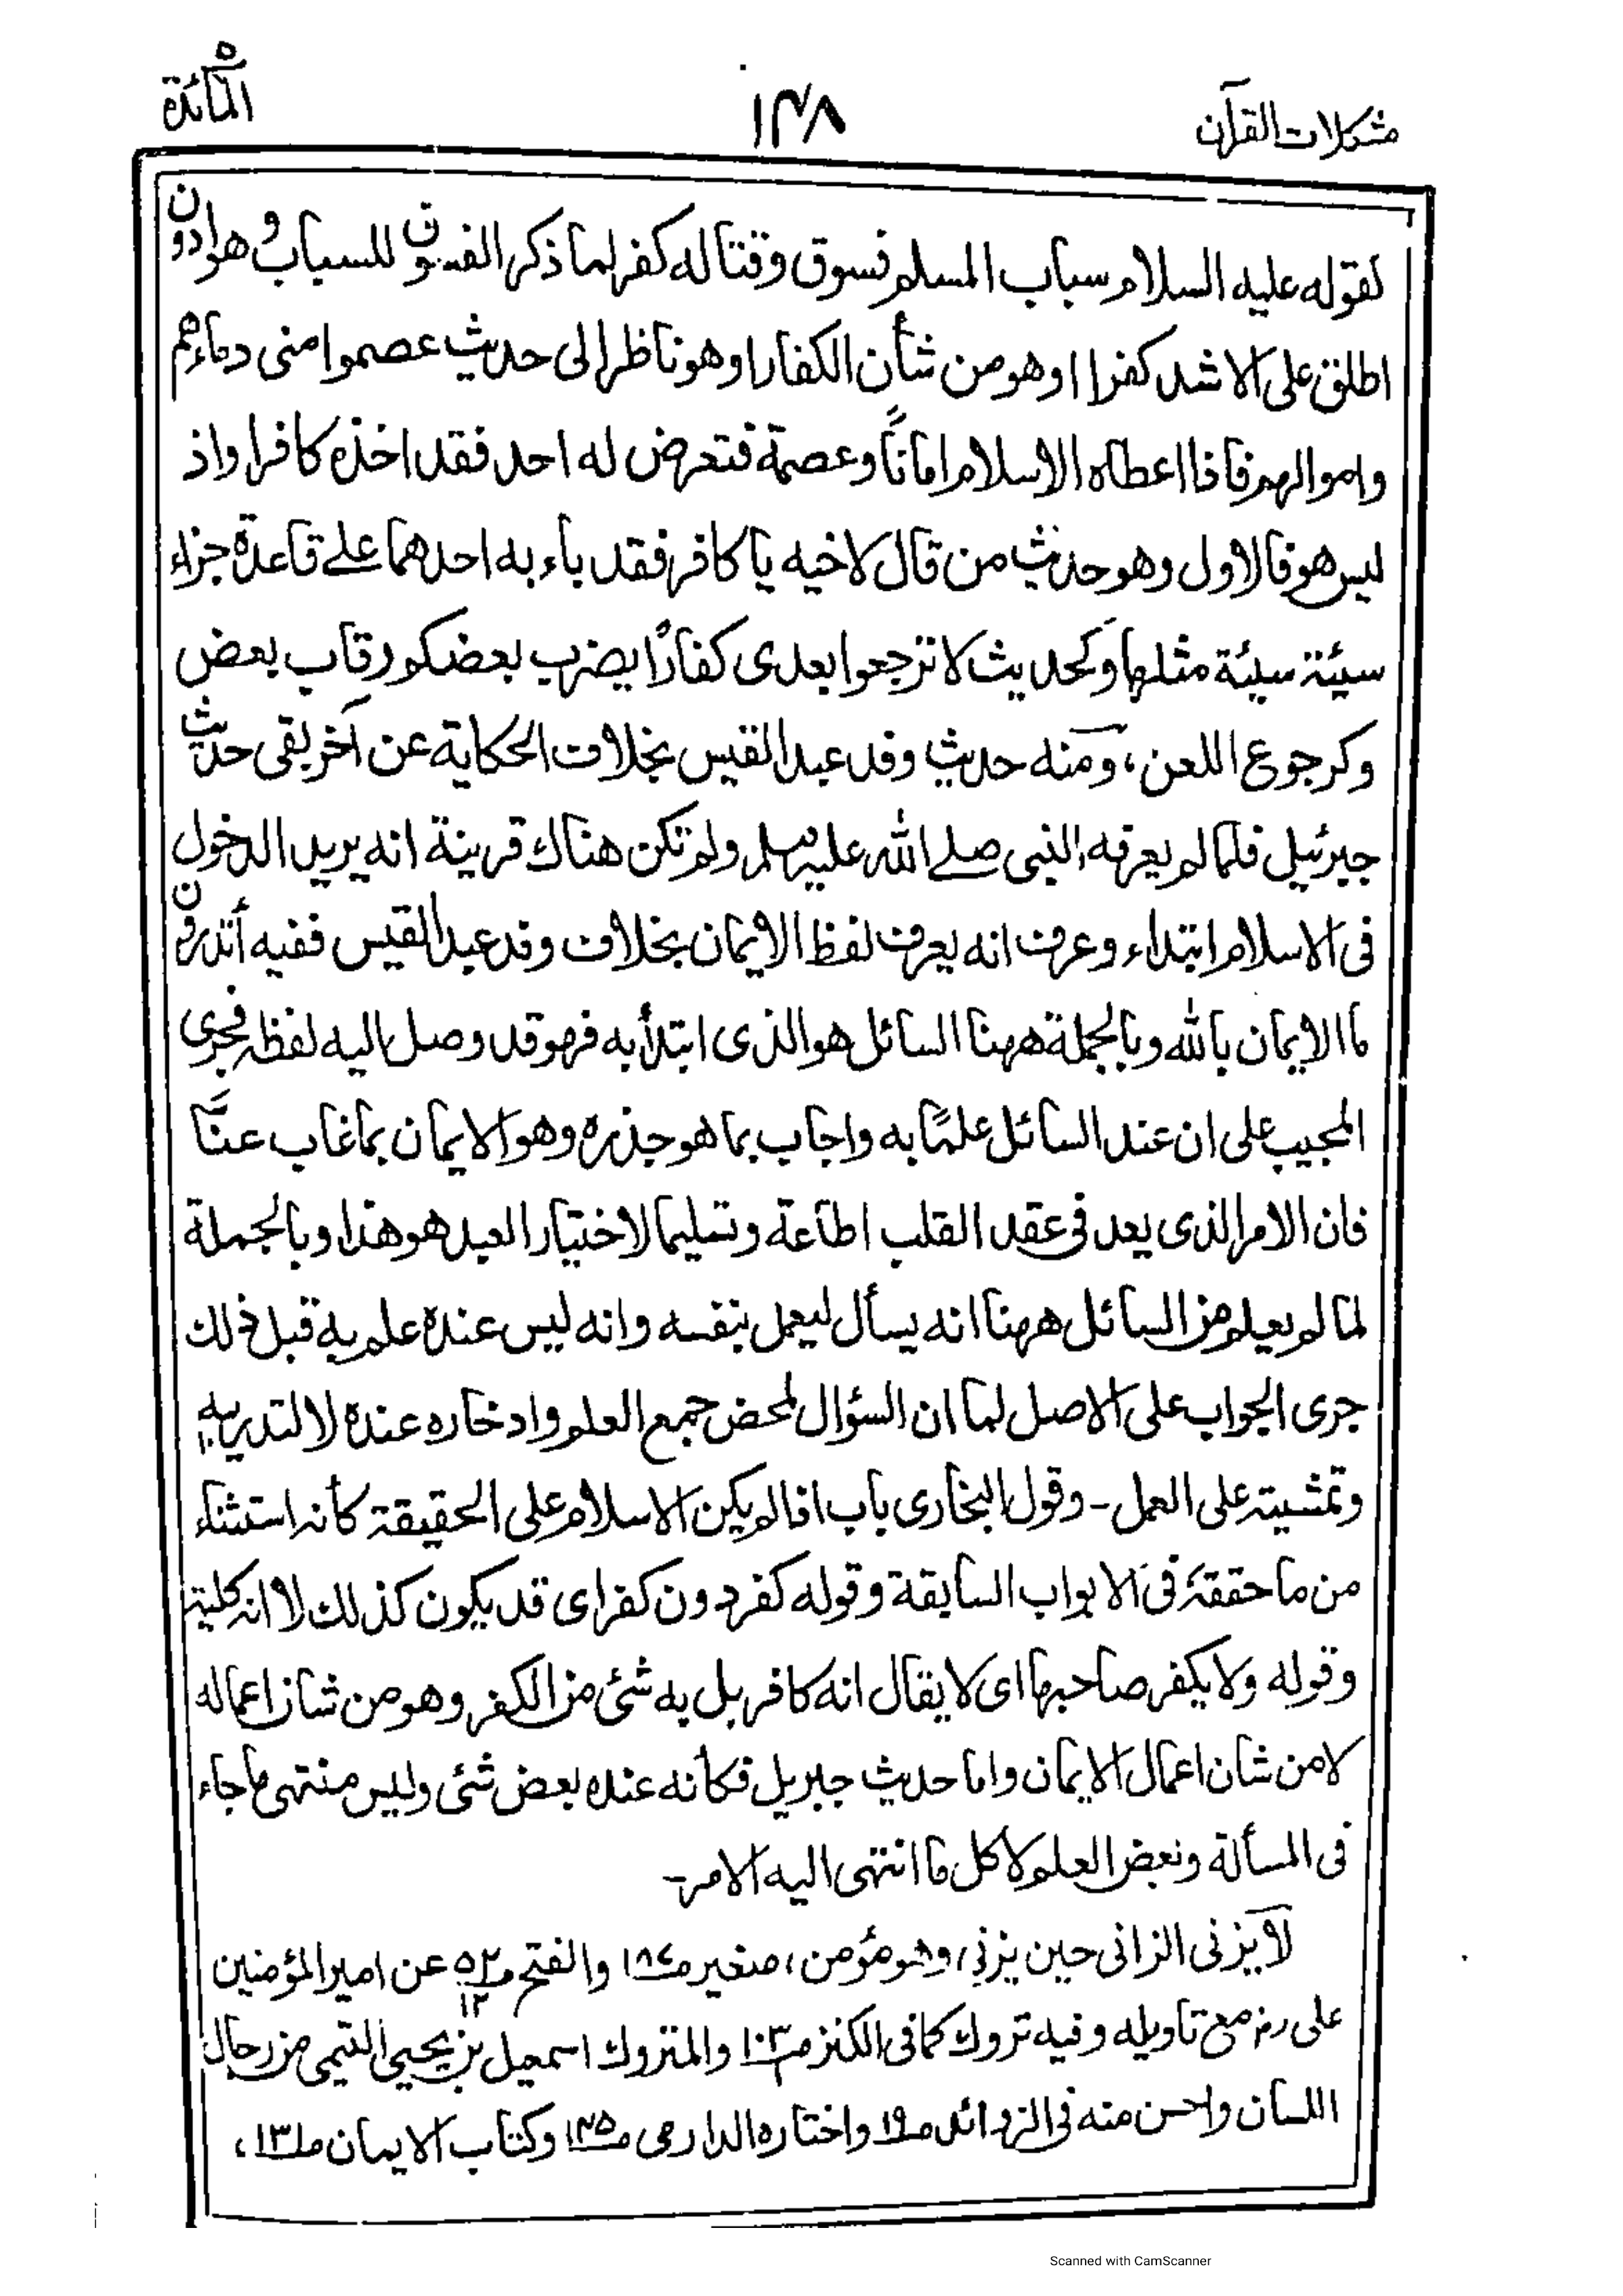 مشكلات القرآن
١٣٨
المآئدة ٥
لقوله عليه السلام سباب المسلم فسوق وقتاله كفر لما ذكر الفسوق للسباب وهو ادون
اطلق على الاشد كفرا او هو من شأن الكفار او هو ناظر الى حديث عصموا منى دماءهم
واموالهم فاذا اعطاه الاسلام امانًا وعصمة فتعرض له احد فقد اخذه كافرا واذ
ليس هو فالاول وهو حديث من قال لاخيه يا كافر فقد باء به احدهما على قاعدة جزاء
سيئة سيئة مثلها وكحديث لا ترجعوا بعدى كفارًا يضرب بعضكم رقاب بعض
وكرجوع اللعن، ومنه حديث وفد عبد القيس بخلاف الحكاية عن آخر بقى حديث
جبرئيل فلما لم يعرفه النبى صلے الله عليه وسلم ولم تكن هناك قرينة انه يريد الدخول
فى الاسلام ابتداء وعرف انه يعرف لفظ الايمان بخلاف وفد عبد القيس ففيه أتدرون
ما الايمان بالله وبالجملة ههنا السائل هو الذى ابتدأ به فهو قد وصل اليه لفظه فجرى
المجيب على ان عند السائل علمًا به واجاب بما هو جذره وهو الايمان بما غاب عنّا
فان الامر الذى يعد فى عقد القلب اطاعة وتسليما لاختيار العبد هو هذا وبالجملة
لما لم يعلم من السائل ههنا انه يسأل ليعمل بنفسه وانه ليس عنده علم به قبل ذلك
جرى الجواب على الاصل لما ان السؤال لمحض جمع العلم وادخاره عنده لا لتدريبه
وتمشيته على العمل ـ وقول البخارى باب اذا لم يكن الاسلام على الحقيقة كأنه استثناء
من ما حققه فى الابواب السابقة وقوله كفر دون كفر اى قد يكون كذلك لا انه كلية
وقوله ولا يكفر صاحبها اى لا يقال انه كافر بل به شئ من الكفر وهو من شان اعماله
لا من شان اعمال الايمان واما حديث جبريل فكأنه عنده بعض شئ وليس منتهى ما جاء
فى المسألة وبعض العلم لا كل ما انتهى اليه الامر ـ
لا يزنى الزانى حين يزنى، وهو مؤمن، صغير ص١٨٧ والفتح ص٥٢/١٢ عن امير المؤمنين
على رض مع تاويله وفيه تروك كما فى الكنز ص١٠٣/١ والمتروك اسمعيل بن يحيى التيمى من رجال
اللسان واحسن منه فى الزوائد ص١٩ واختاره الدارمى ص١٣٥ وكتاب الايمان ص١٣،
Scanned with CamScanner